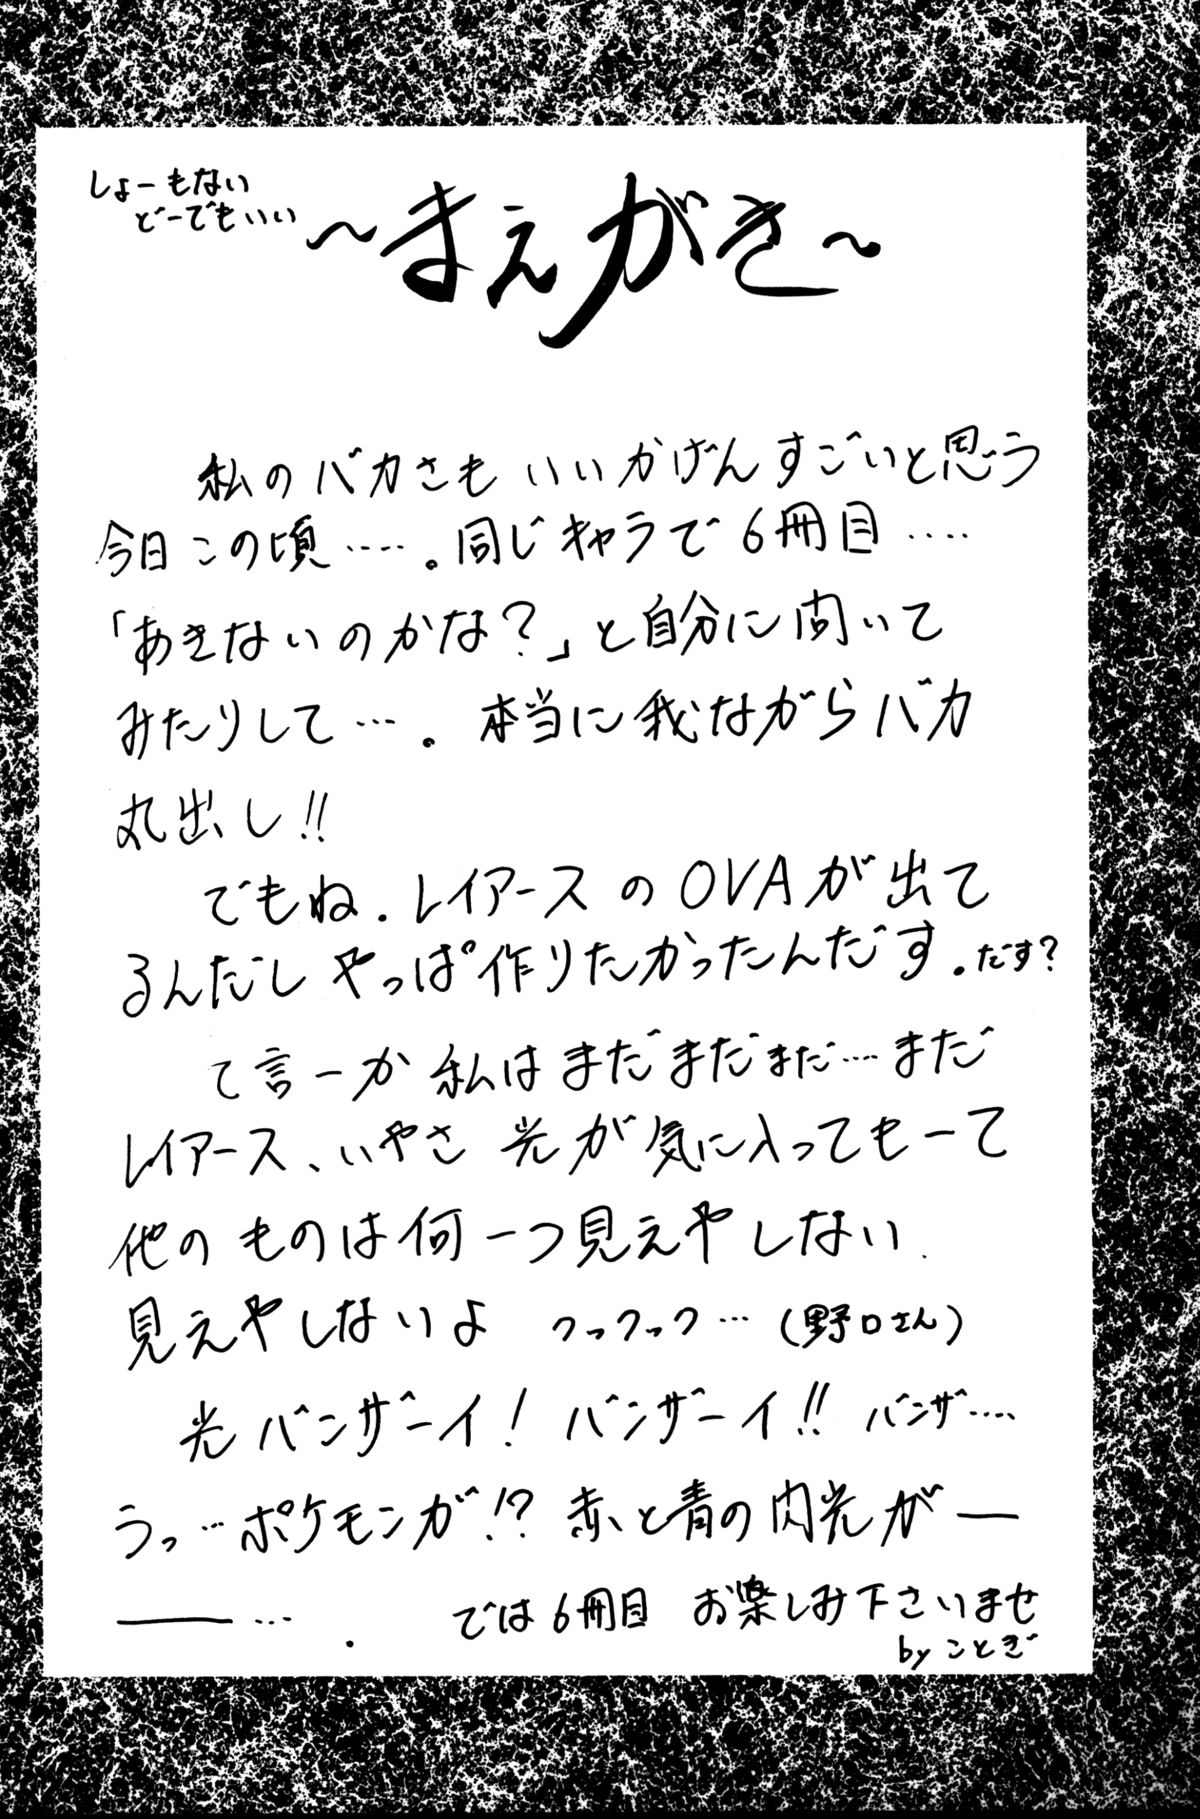 しょーもない
どーでもいい
～まえがき～
私のバカさもいいかげんすごいと思う
今日この頃……。同じキャラで6冊目……
「あきないのかな？」と自分に問いて
みたりして…。本当に我ながらバカ
丸出し!!
でもね．レイアースのOVAが出て
るんだし やっぱ作りたかったんだす。だす？
て言ーか 私はまだまだまだ……まだ
レイアース、いやさ 光が気に入ってもーて
他のものは何一つ見えやしない．
見えやしないよ クックック…（野口さん）
光バンザーイ！バンザーイ!!バンザ……
うっ…ポケモンが!?赤と青の閃光がー
ー…． では6冊目 お楽しみ下さいませ
by ことぎ